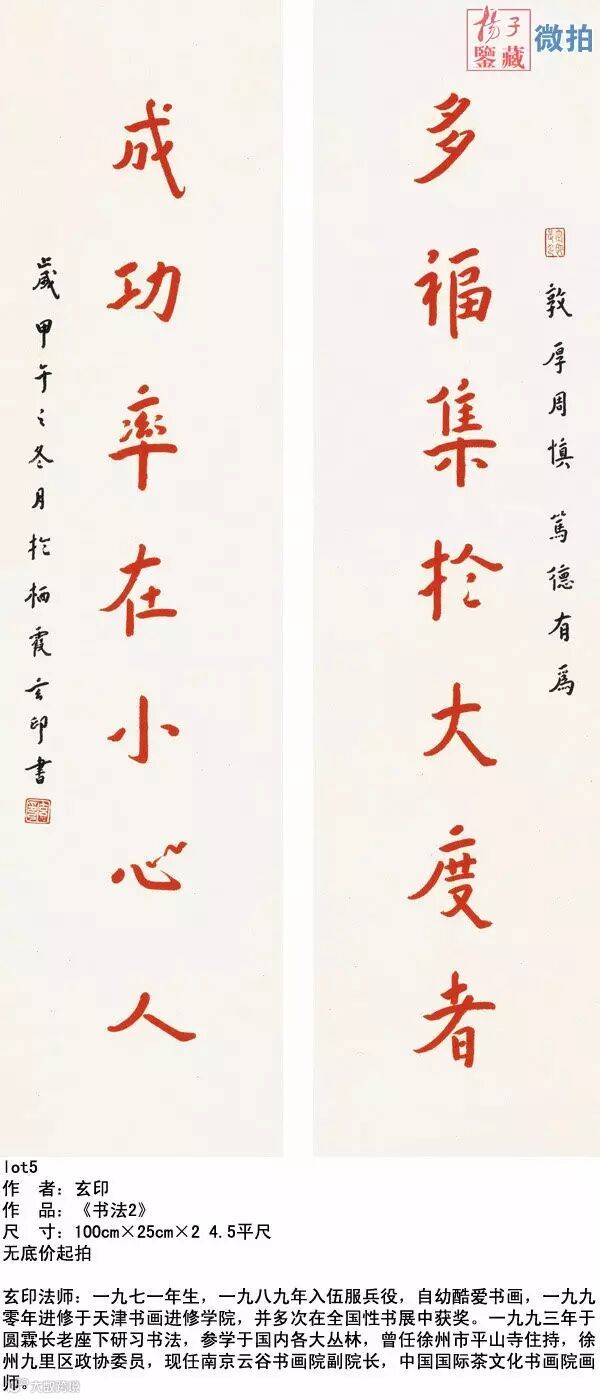 揚子
鑒藏
微拍
多福集於大度者
敦厚周慎 篤德有爲
成功率在小心人
歲甲午之冬月於栖霞玄印書
lot5
作 者：玄印
作 品：《书法2》
尺 寸：100cm×25cm×2 4.5平尺
无底价起拍
玄印法师：一九七一年生，一九八九年入伍服兵役，自幼酷爱书画，一九九
零年进修于天津书画进修学院，并多次在全国性书展中获奖。一九九三年于
圆霖长老座下研习书法，参学于国内各大丛林，曾任徐州市平山寺住持，徐
州九里区政协委员，现任南京云谷书画院副院长，中国国际茶文化书画院画
师。